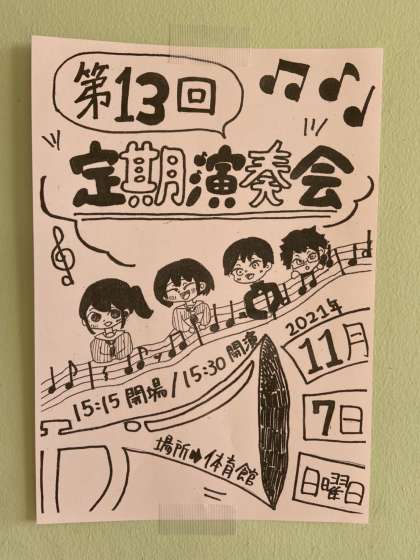 第13回
定期演奏会
15:15 開場/15:30 開演
2021年
11月
7日
日曜日
場所➡体育館